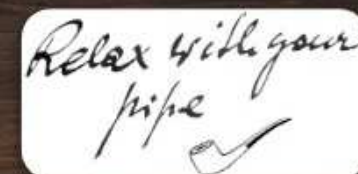 Relax with your
pipe